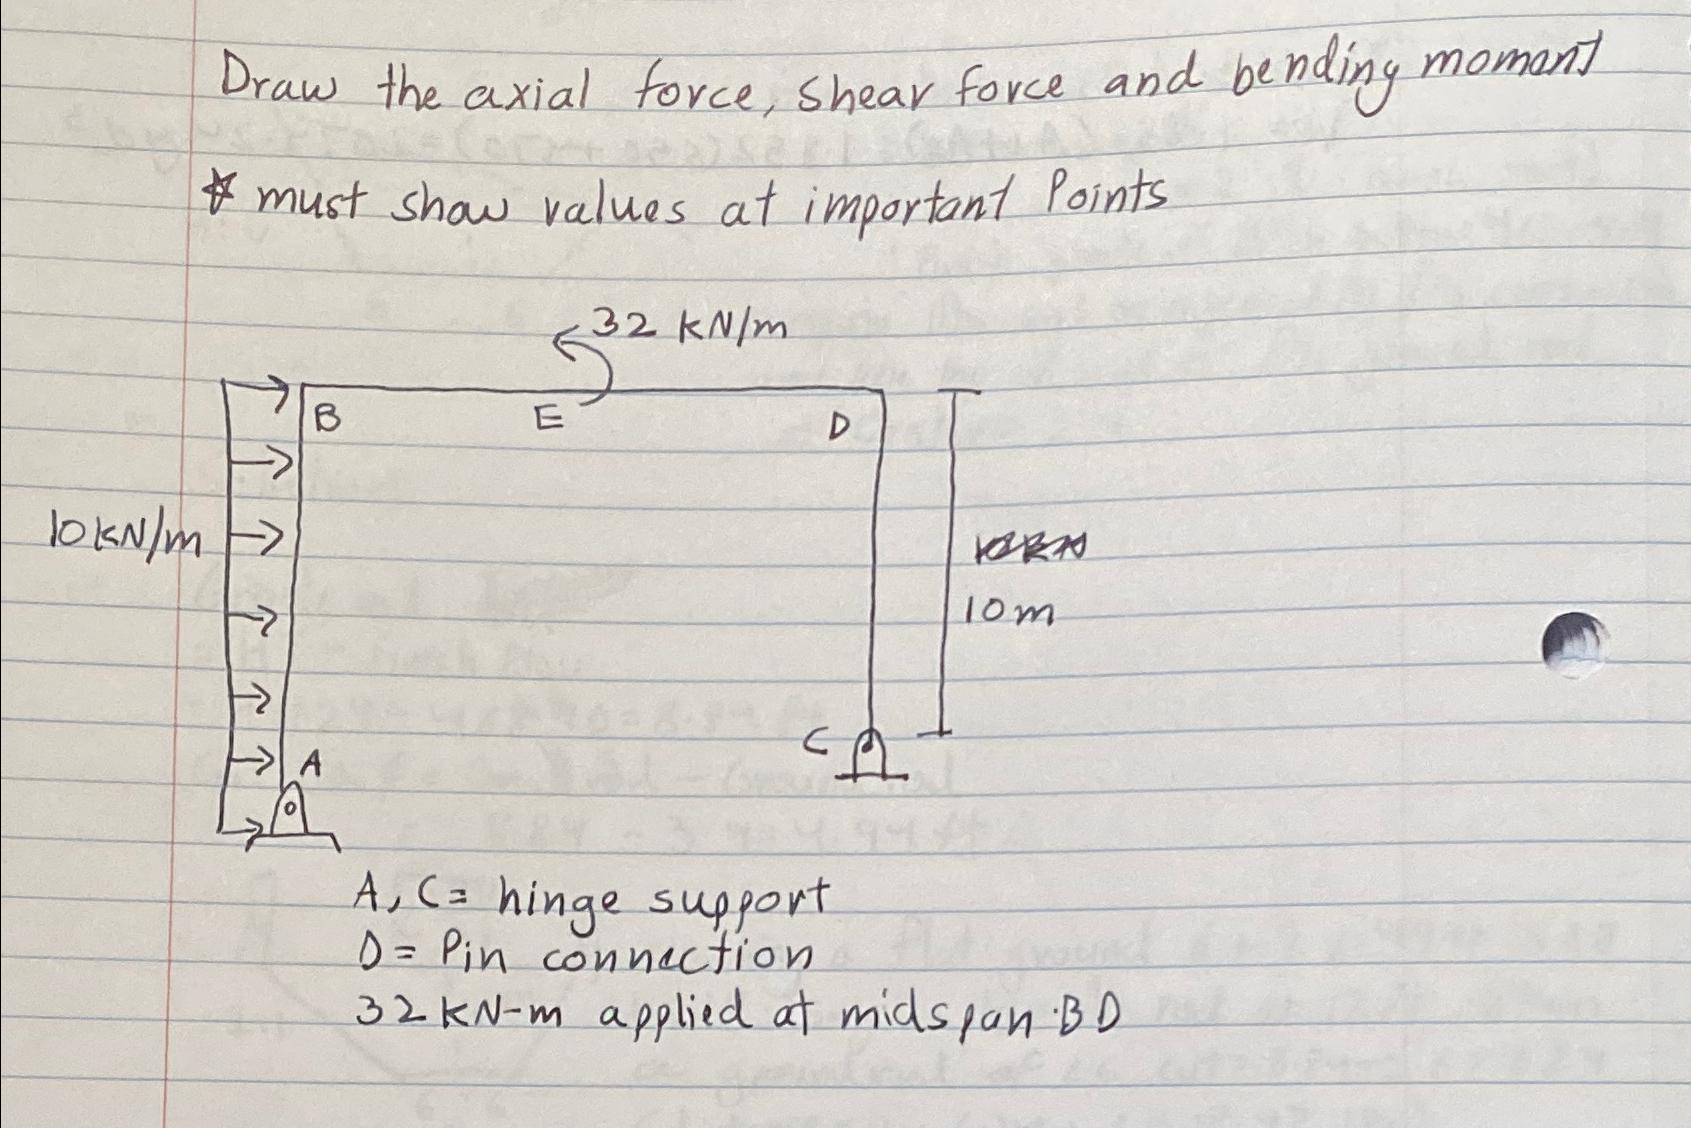 Draw the axial force, shear force and bending moment
* must show values at important Points
32 kN/m
B E D
10 kN/m
10 m
C
A
A, C = hinge support
D = Pin connection
32 KN-m applied at midspan BD